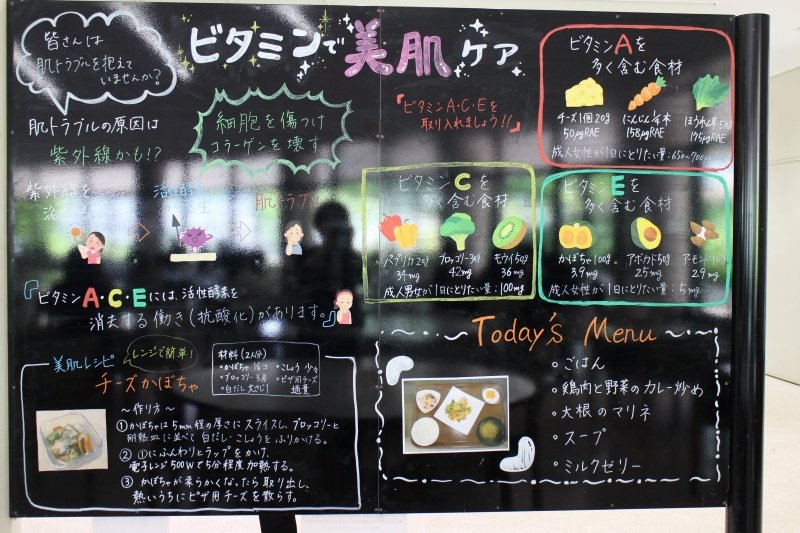 皆さんは
肌トラブルを抱えて
いませんか?
ビタミンで美肌ケア
肌トラブルの原因は
紫外線かも!?
細胞を傷つけ
コラーゲンを壊す
『ビタミンA・C・Eを
取り入れましょう!!』
紫外線を
浴
活性酸
肌トラブ
『ビタミンA・C・Eには、活性酸素を
消去する働き(抗酸化)があります。』
ビタミンAを
多く含む食材
チーズ1個20g
50μgRAE
にんじん
158μgRAE
ほうれん草50g
175μgRAE
成人女性が1日にとりたい量:650~700
ビタミンCを
多く含む食材
パプリカ20g
34mg
ブロッコリー30g
42mg
キウイ50g
36mg
成人男女が1日にとりたい量:100mg
ビタミンEを
多く含む食材
かぼちゃ100g
3.9mg
アボカド50g
2.5mg
アーモンド10g
2.9mg
成人女性が1日にとりたい量:5mg
美肌レシピ
レンジで簡単!
チーズかぼちゃ
材料(2人分)
・かぼちゃ 1/8コ
・ブロッコリー 3房
・白だし 大さじ1
・こしょう 少々
・ピザ用チーズ
適量
~作り方~
①かぼちゃは5mm程の厚さにスライスし、ブロッコリーと
耐熱皿に並べて白だし・こしょうをふりかける。
②①にふんわりとラップをかけ、
電子レンジ500Wで5分程度加熱する。
③かぼちゃが柔らかくなったら取り出し、
熱いうちにピザ用チーズを散らす。
Today's Menu
・ごはん
・鶏肉と野菜のカレー炒め
・大根のマリネ
・スープ
・ミルクゼリー